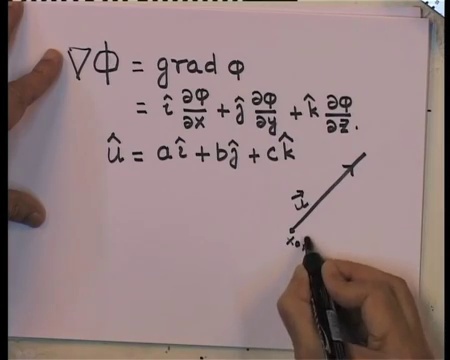 ∇Φ = grad φ
= î ∂φ/∂x + ĵ ∂φ/∂y + k̂ ∂φ/∂z.
û = aî + bĵ + ck̂
u⃗
x₀